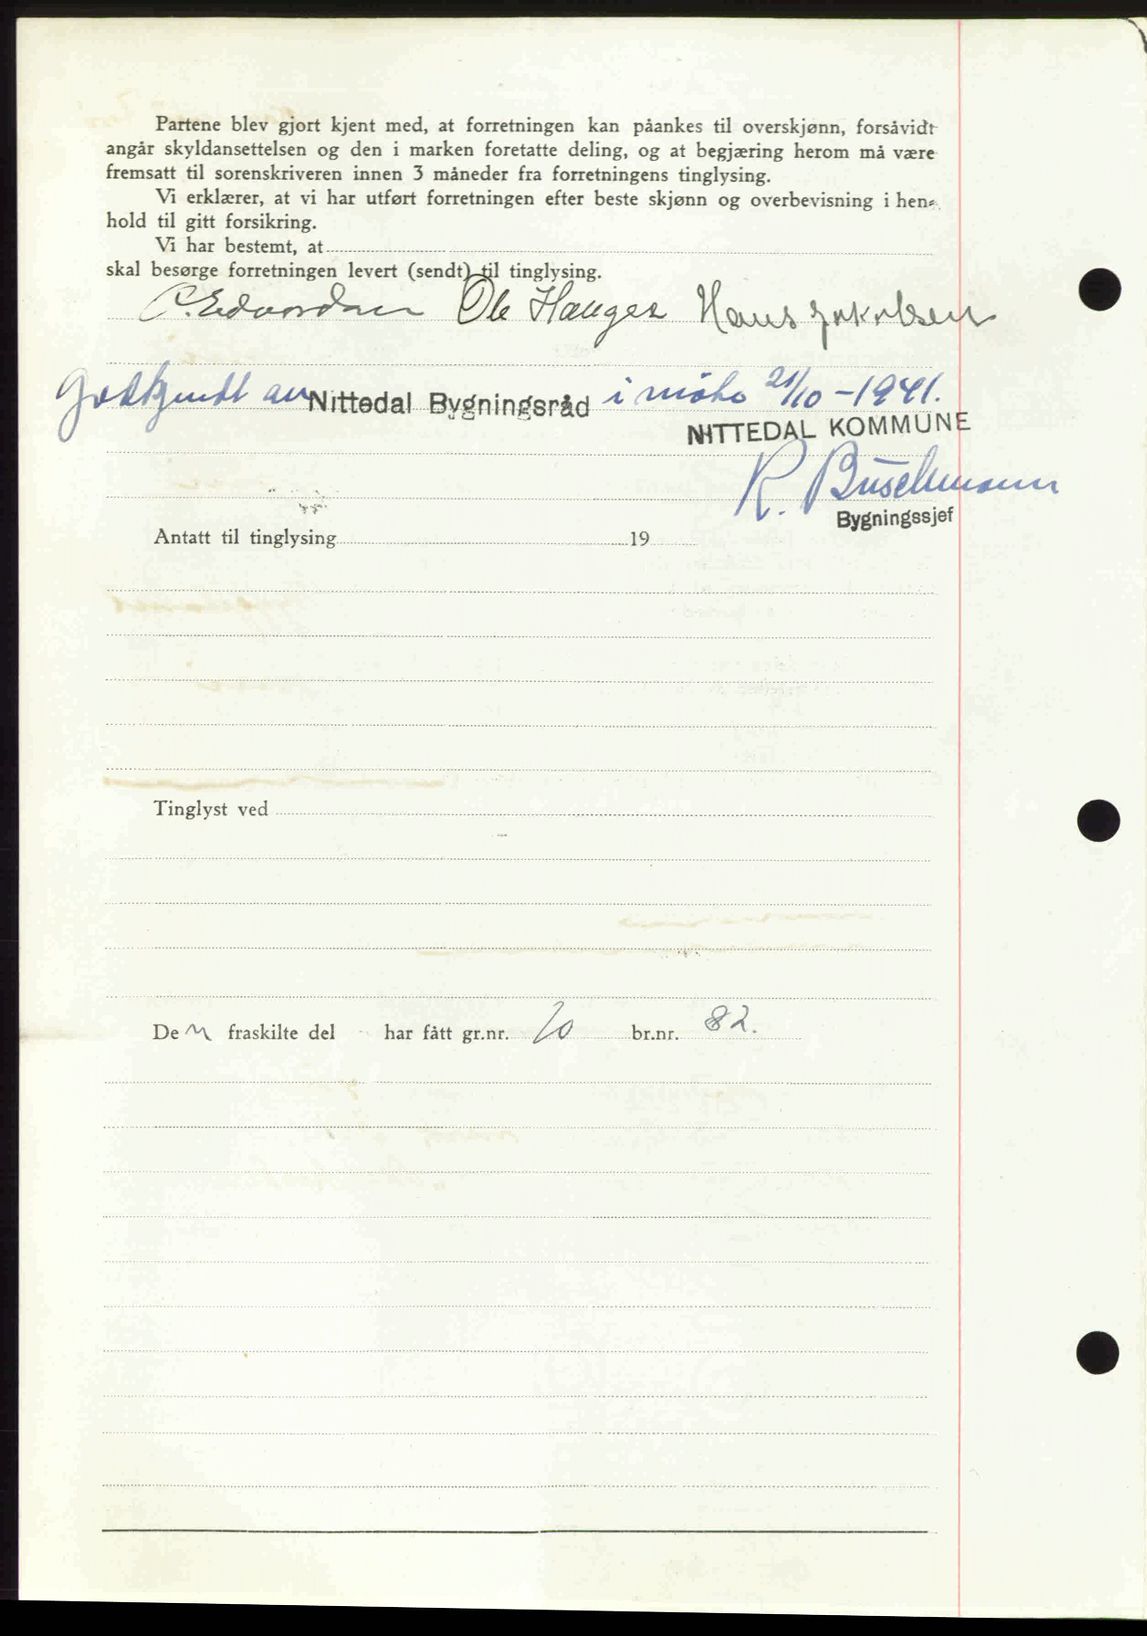 Partene blev gjort kjent med, at forretningen kan påankes til overskjønn, forsåvidt
angår skyldansettelsen og den i marken foretatte deling, og at begjæring herom må være
fremsatt til sorenskriveren innen 3 måneder fra forretningens tinglysing.
Vi erklærer, at vi har utført forretningen efter beste skjønn og overbevisning i hen-
hold til gitt forsikring.
Vi har bestemt, at
skal besørge forretningen levert (sendt) til tinglysing.
Ole Hauger Hans Jakobsen
Godkjendt av Nittedal Bygningsråd i møte 21/10-1941.
NITTEDAL KOMMUNE
R. Buschmann
Bygningssjef
Antatt til tinglysing 19
Tinglyst ved
Den fraskilte del har fått gr.nr. 20 br.nr. 82.